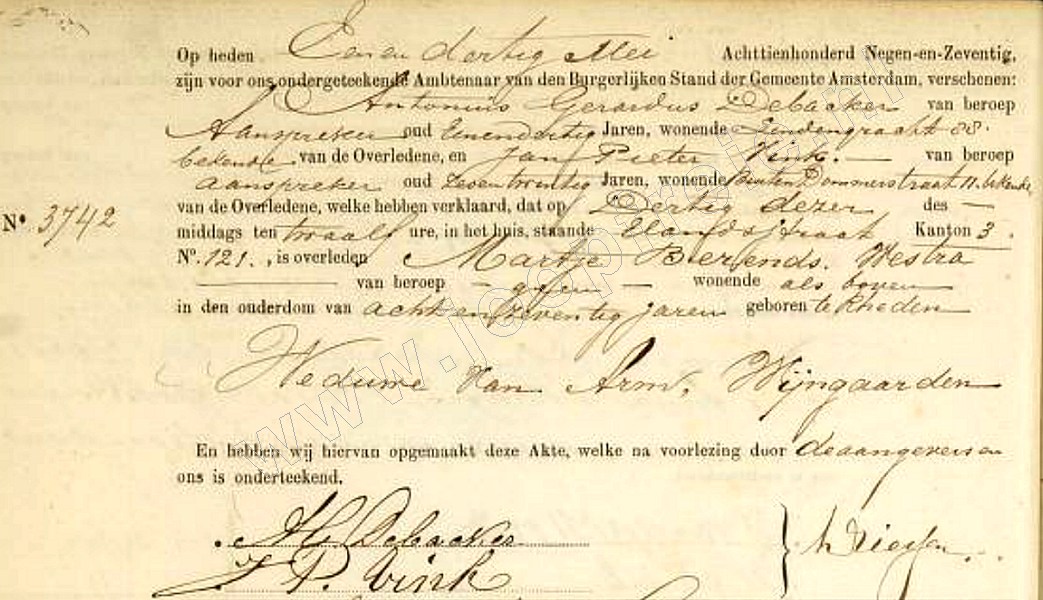 Op heden Een en dertig Mei Achttienhonderd Negen-en-Zeventig,
zijn voor ons ondergeteekende Ambtenaar van den Burgerlijken Stand der Gemeente Amsterdam, verschenen:
Antonius Gerardus Debacker van beroep
Aanspreker oud Eenendertig Jaren, wonende Lindengracht 88.
bekende van de Overledene, en Jan Pieter Vink. — van beroep
aanspreker oud Zeventwintig Jaren, wonende Buiten Dommerstraat 11. bekende
van de Overledene, welke hebben verklaard, dat op Dertig dezer des —
Nº. 3742
middags ten twaalf ure, in het huis, staande Elandsstraat Kanton 3.
Nº. 121., is overleden Martje Berends. Westra
— van beroep — geen — wonende als boven
in den ouderdom van acht en zeventig jaren geboren te Rheden
Weduwe van Arm. Wijngaarden
En hebben wij hiervan opgemaakt deze Akte, welke na voorlezing door de aangevers en
ons is onderteekend.
AG Debacker
J P. Vink